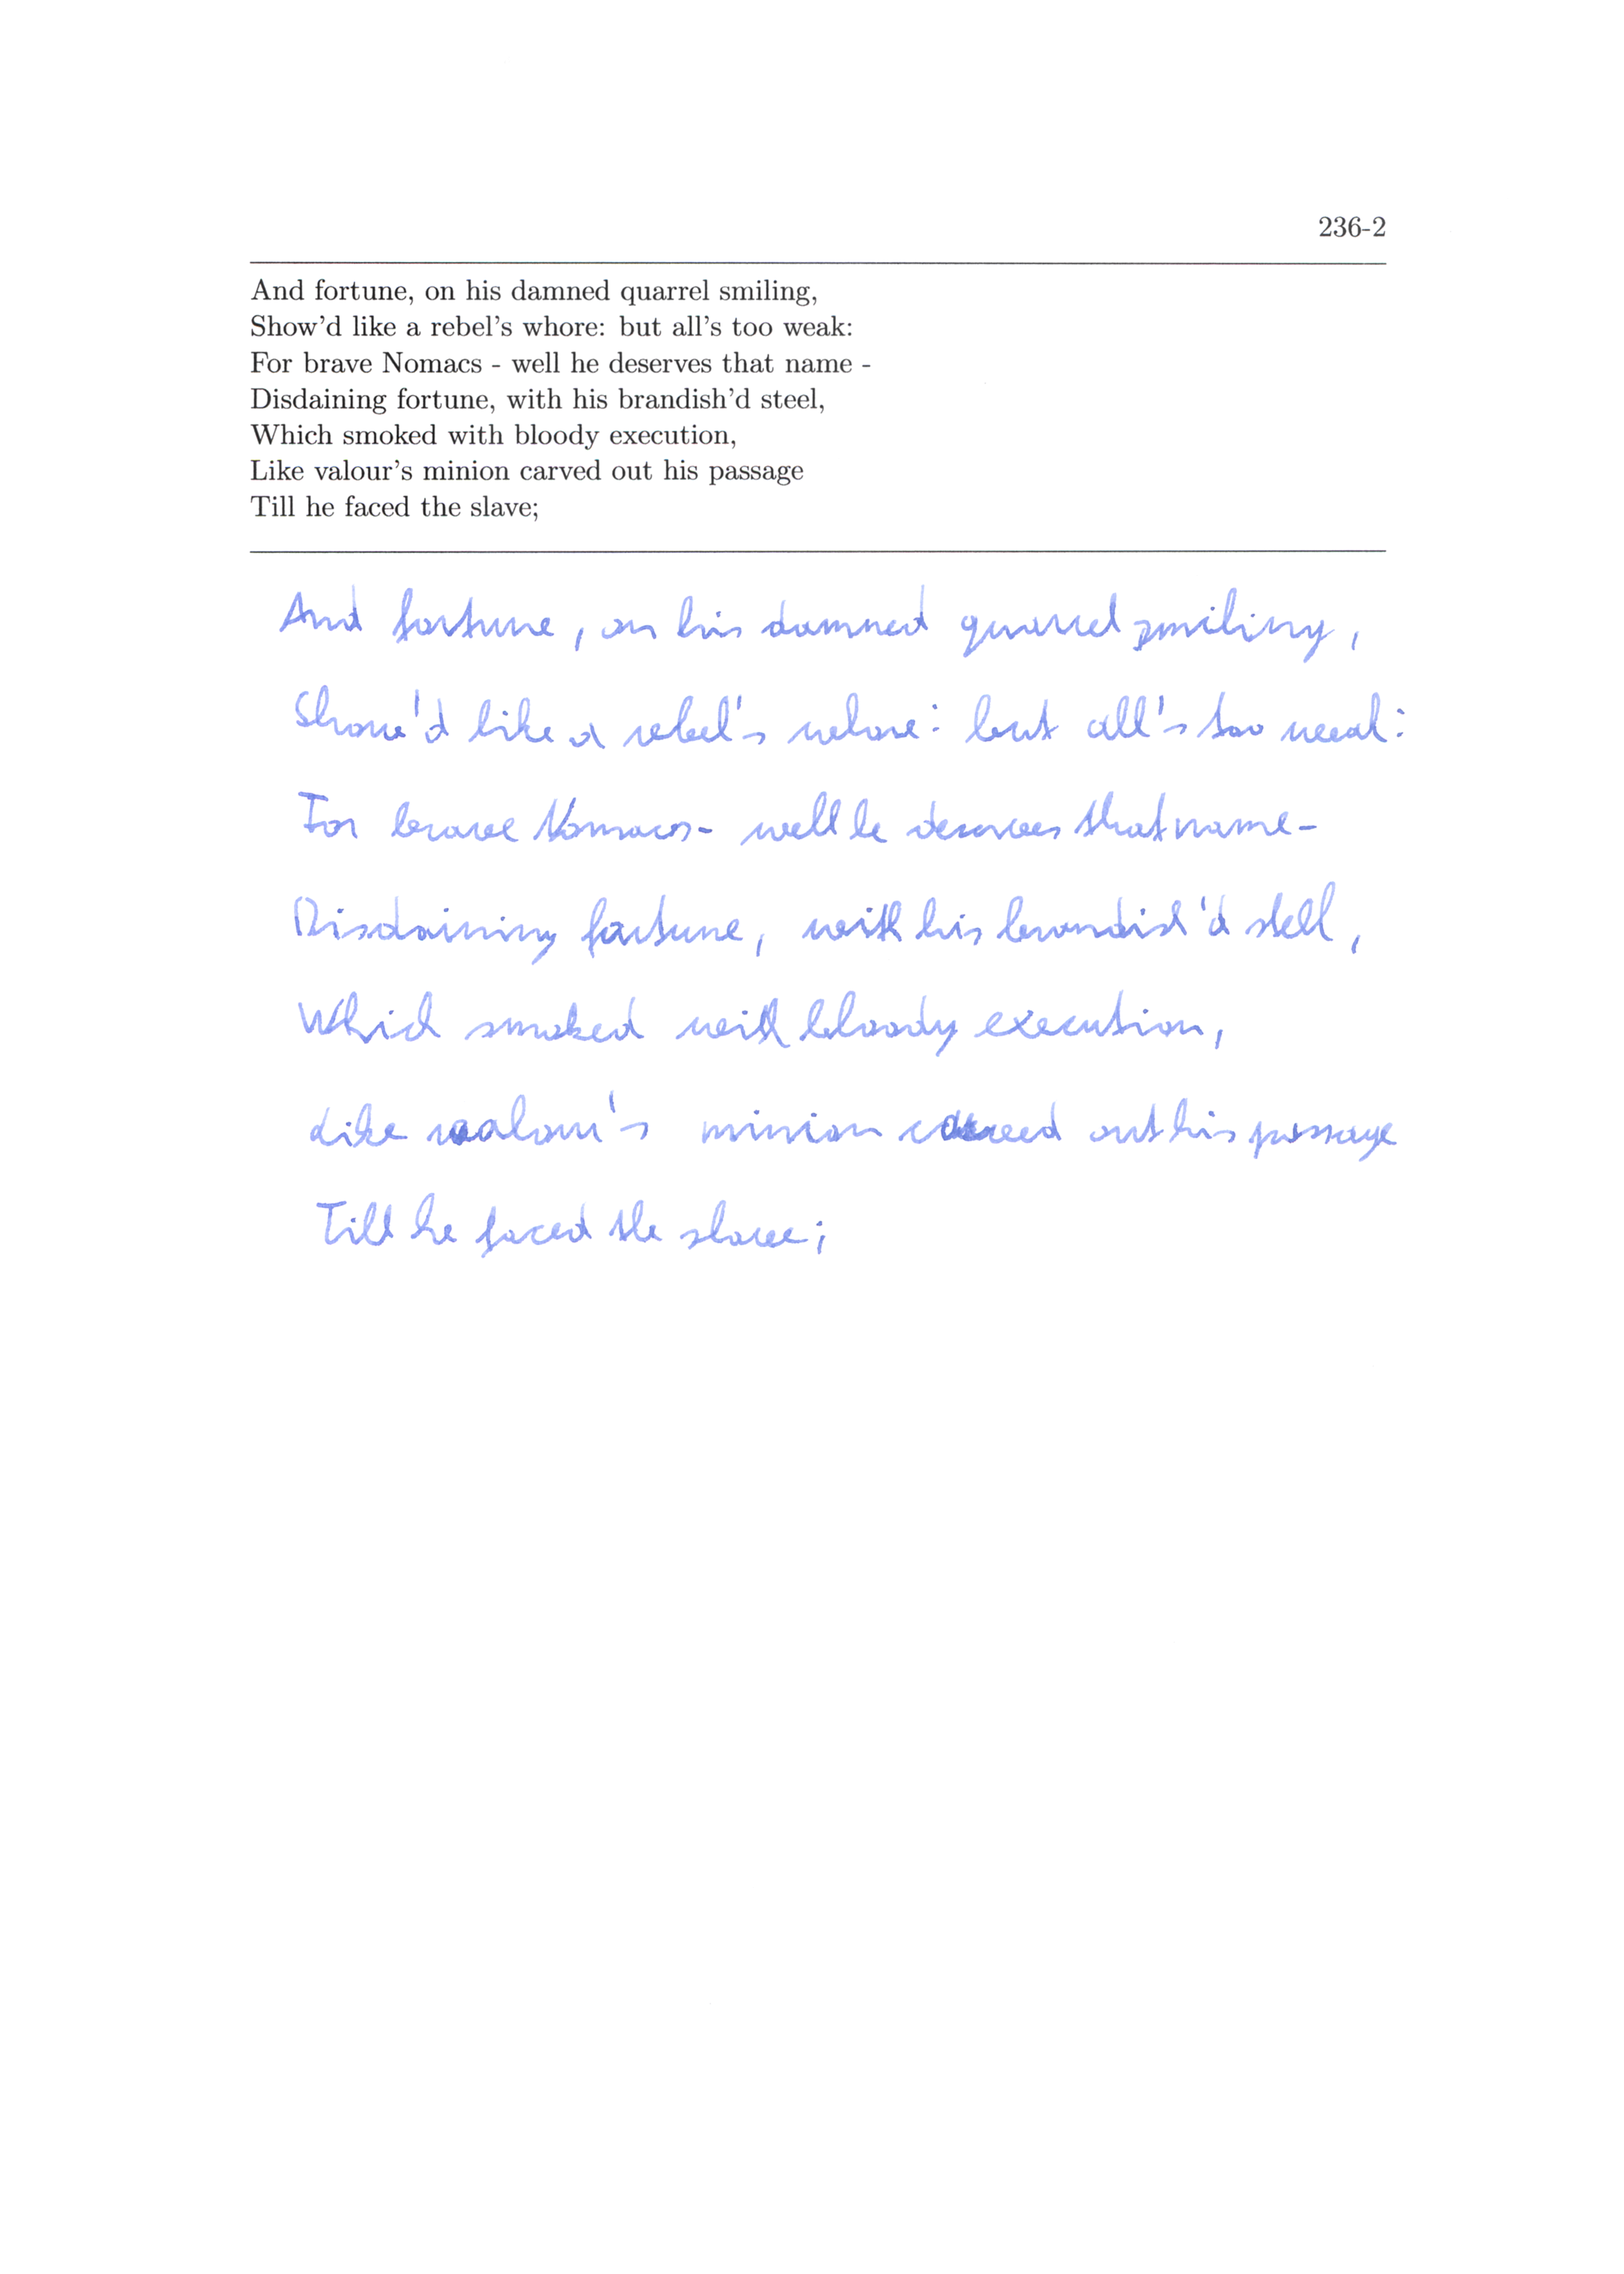 236-2
And fortune, on his damned quarrel smiling,
Show'd like a rebel's whore: but all's too weak:
For brave Nomacs - well he deserves that name -
Disdaining fortune, with his brandish'd steel,
Which smoked with bloody execution,
Like valour's minion carved out his passage
Till he faced the slave;
And fortune, on his damned quarrel smiling,
Show'd like a rebel's whore: but all's too weak:
For brave Nomacs- well he deserves that name-
Disdaining fortune, with his brandish'd stell,
Which smoked with bloody execution,
Like valour's minion carved out his passage
Till he faced the slave;